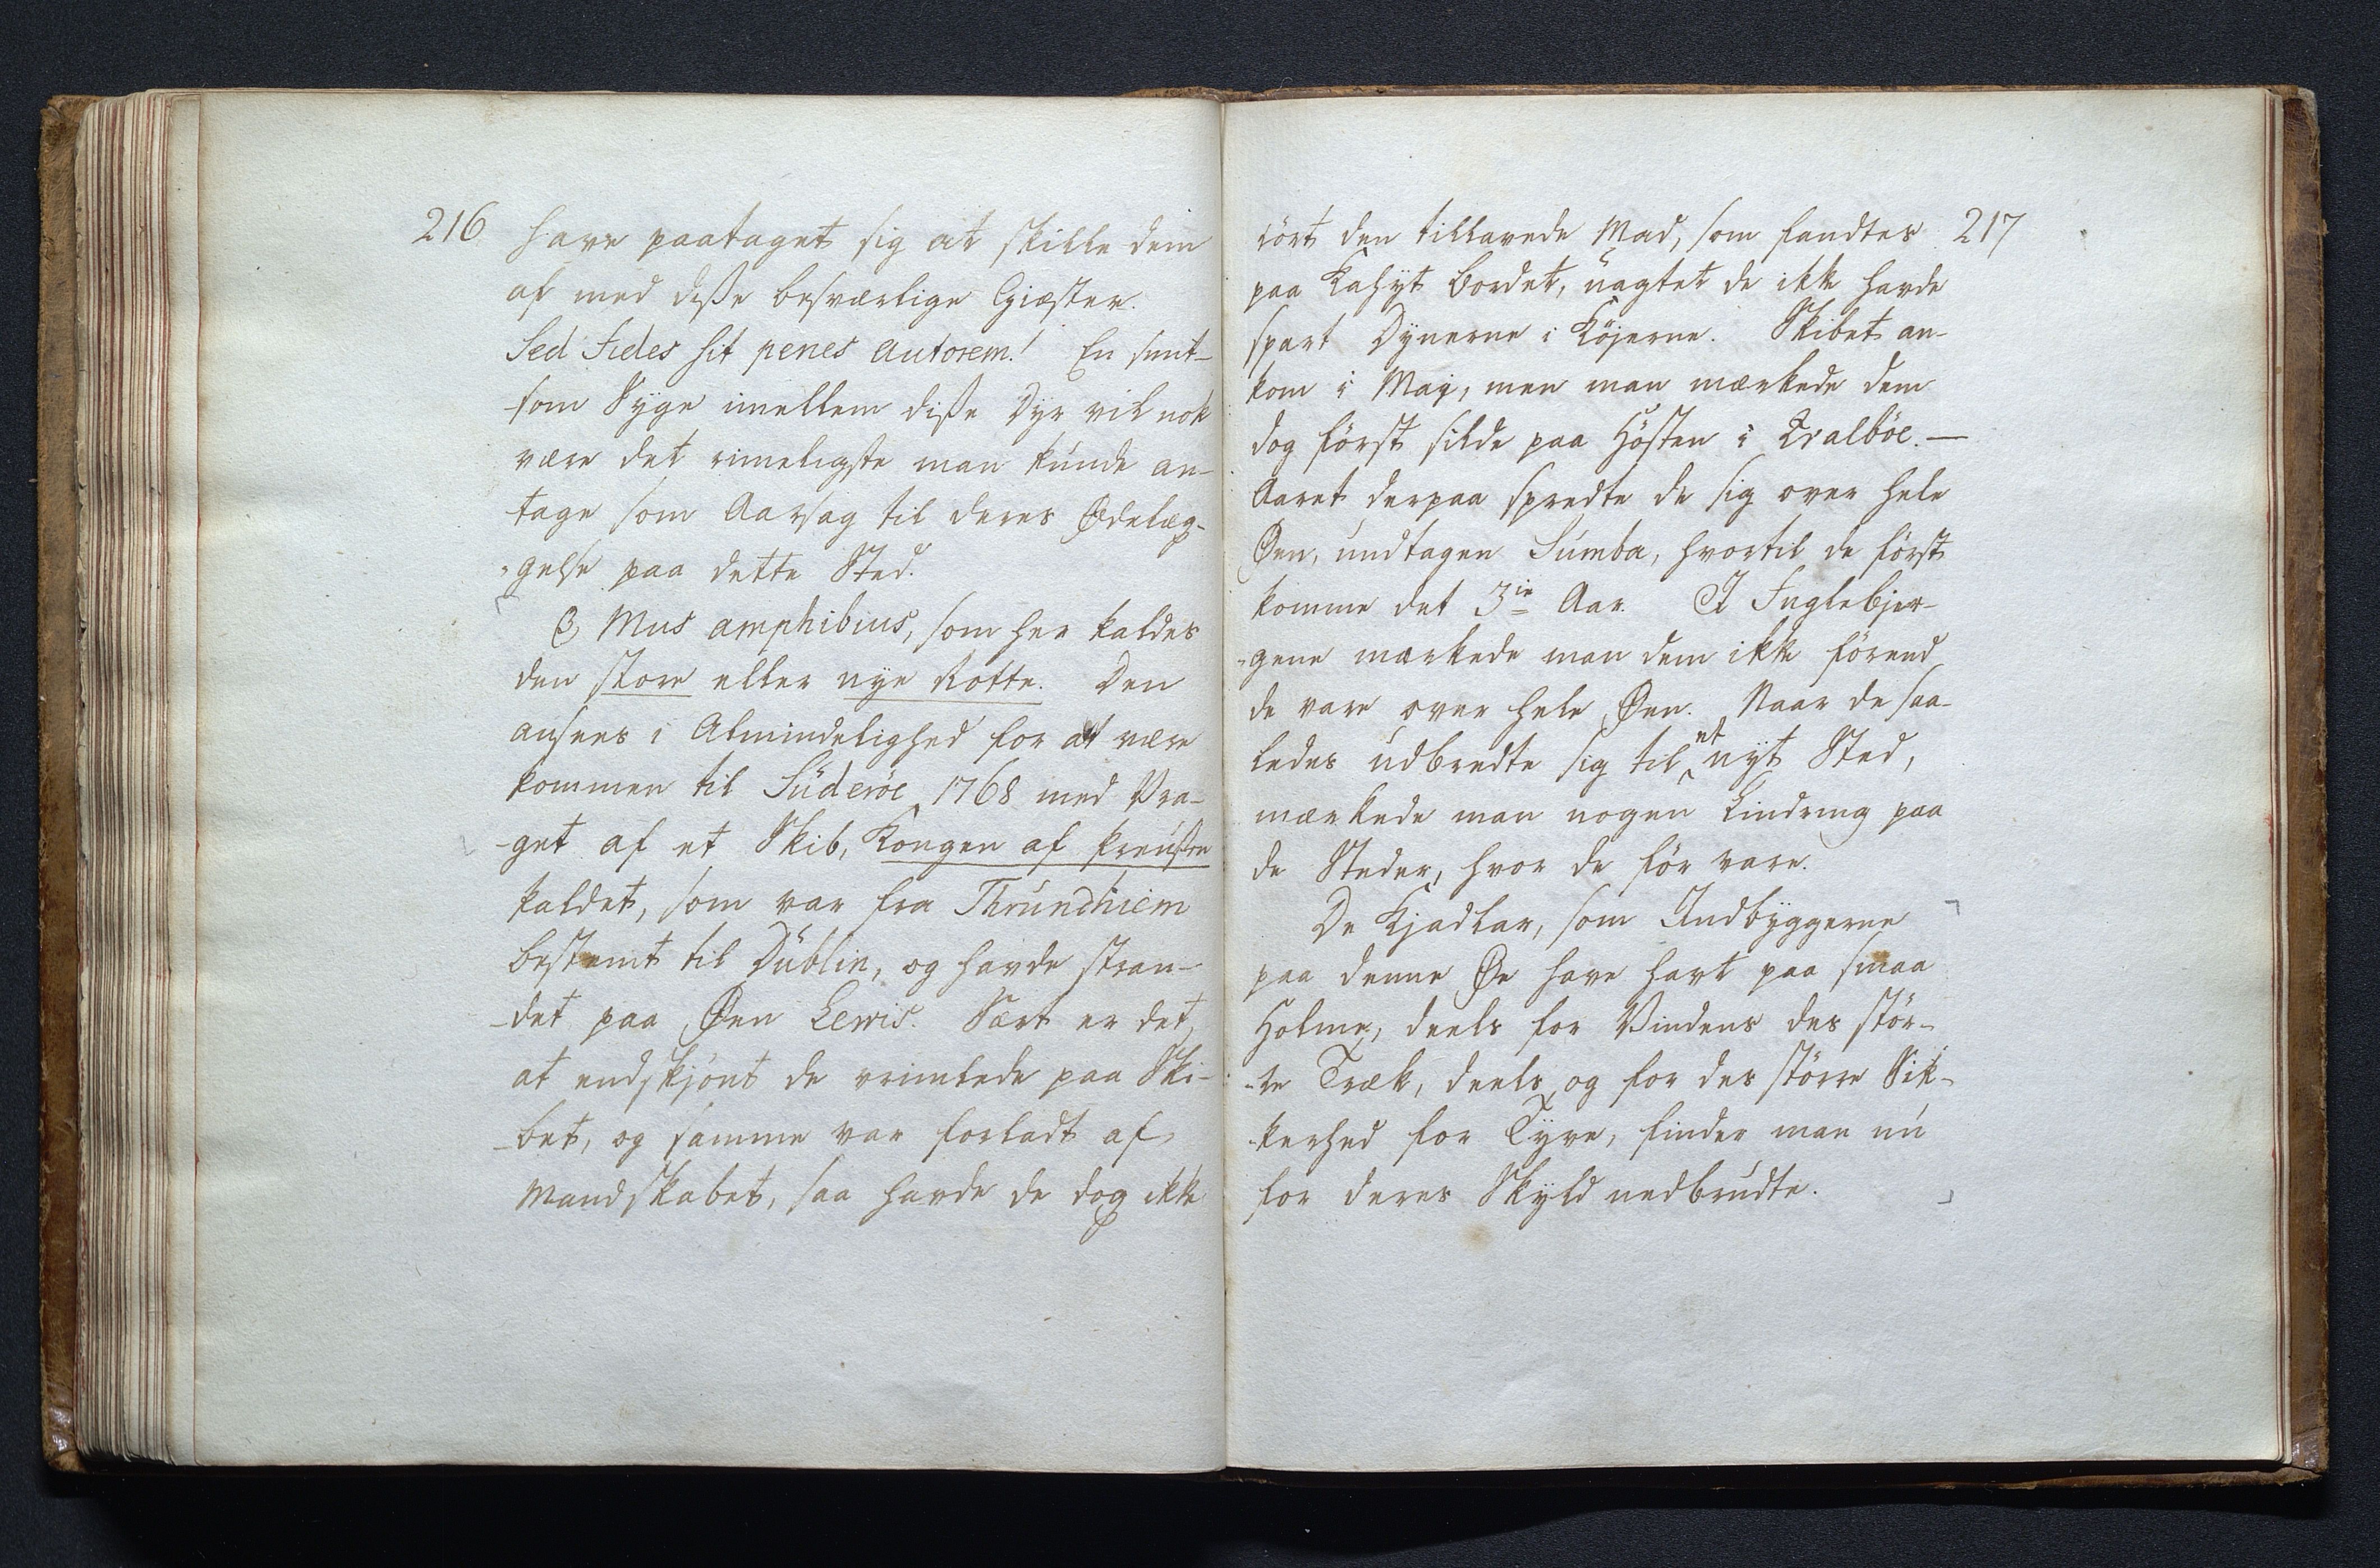 216
have paataget sig at skille dem
af med diße besværlige Giæster.
Sed fides sit penes autorem! En smit-
som Syge imellem diße Dyr vil nok
være det rimeligste man kunde an-
tage som Aarsag til deres Ødelæg-
-gelse paa dette Sted.
Mus amphibius, som her kaldes
den store eller nye Rotte. Den
ansees i Almindelighed for at være
kommen til Süderöe 1768 med Vra-
-get af et Skib, Kongen af Preußen
kaldet, som var fra Thrundhiem
bestemt til Dublin, og havde stran-
-det paa Øen Lewis. Sært er det,
at endskjönt de vrimlede paa Ski-
-bet, og samme var forladt af
Mandskabet, saa havde de dog ikke
217
rört den tillavede Mad, som fandtes
paa Kahyt Bordet, uagtet de ikke havde
spart Dynerne i Köjerne. Skibet an-
kom i Maj, men man mærkede dem
dog först silde paa Hösten i Qvalböe.—
Aaret derpaa spredte de sig over hele
Øen, undtagen Sumba, hvortil de först
komme det 3ie Aar. I Fuglebjer-
-gene mærkede man dem ikke förend
de vare over hele Øen. Naar de saa-
ledes udbredte sig til et nyt Sted,
mærkede man nogen Lindring paa
de Steder, hvor de för vare.
De Kjadlar, som Indbyggerne
paa denne Øe have havt paa smaa
Holme, deels for Vindens des stör-
-re Træk, deels og for des större Sik-
kerhed for Tyve, finder man nu
for deres Skyld nedbrudte.